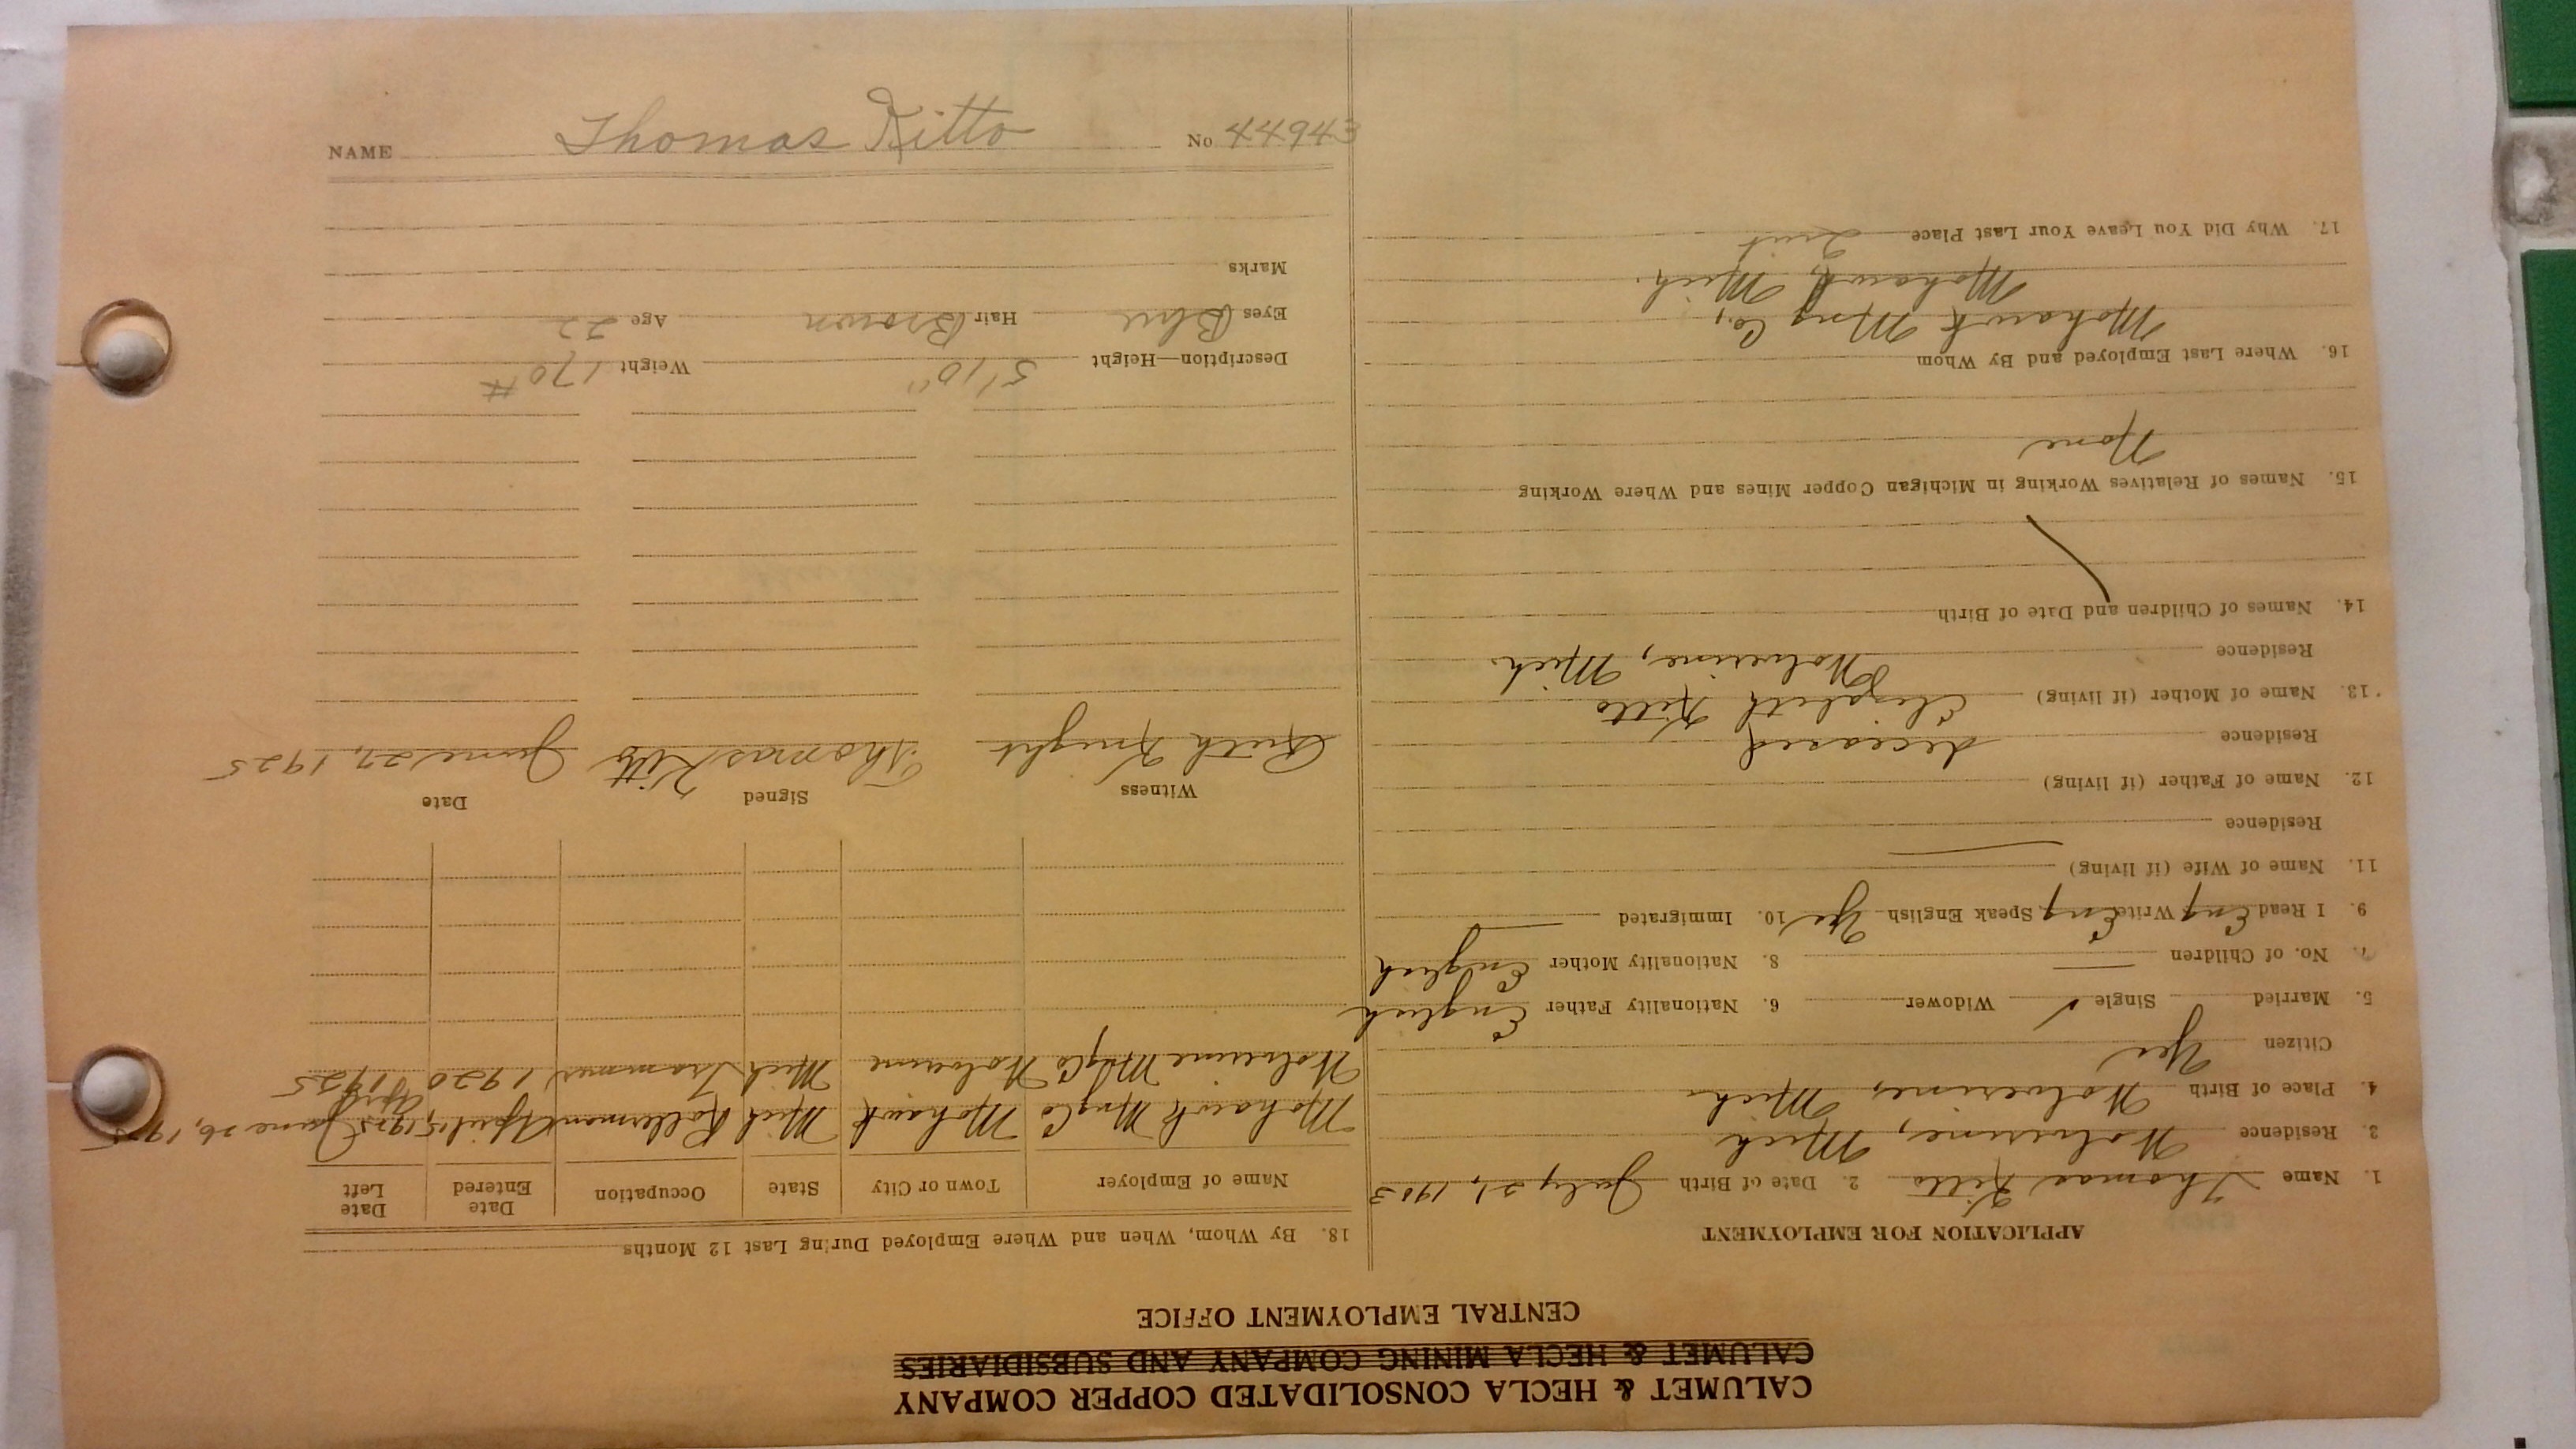 CALUMET & HECLA CONSOLIDATED COPPER COMPANY
CALUMET & HECLA MINING COMPANY AND SUBSIDIARIES
CENTRAL EMPLOYMENT OFFICE
APPLICATION FOR EMPLOYMENT
1. Name Thomas Kitto 2. Date of Birth July 21, 1903
3. Residence Wolverine, Mich
4. Place of Birth Wolverine, Mich
Citizen Yes
5. Married Single ✓ Widower 6. Nationality Father English
7. No. of Children — 8. Nationality Mother English
9. I Read Eng Write Eng Speak English Yes 10. Immigrated —
11. Name of Wife (if living) —
Residence
12. Name of Father (if living)
Residence deceased
13. Name of Mother (if living) Elizabeth Kitto
Residence Wolverine, Mich.
14. Names of Children and Date of Birth
15. Names of Relatives Working in Michigan Copper Mines and Where Working
None
16. Where Last Employed and By Whom
Mohawk Mng Co,
Mohawk, Mich.
17. Why Did You Leave Your Last Place Quit
18. By Whom, When and Where Employed During Last 12 Months
Name of Employer Town or City State Occupation Date Entered Date Left
Mohawk Mng Co Mohawk Mich Rollerman April 15, 1925 June 26, 1925
Wolverine Mng Co Wolverine Mich Trammer 1920 April 1925
Witness Signed Date
Ruth Knight Thomas Kitto June 27, 1925
Description—Height 5'10" Weight 170#
Eyes Blue Hair Brown Age 22
Marks
NAME Thomas Kitto No 44943